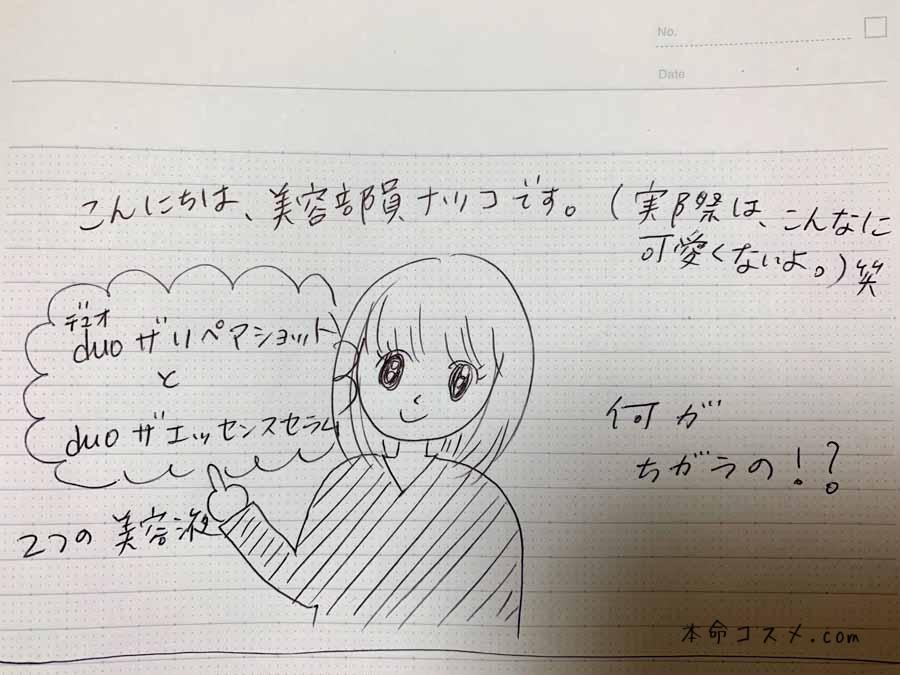 No.
Date
こんにちは、美容部員ナツコです。(実際は、こんなに
可愛くないよ。)笑
デュオ
duo ザリペアショット
と
duo ザエッセンスセラム
2つの美容液
何が
ちがうの!?
本命コスメ.com